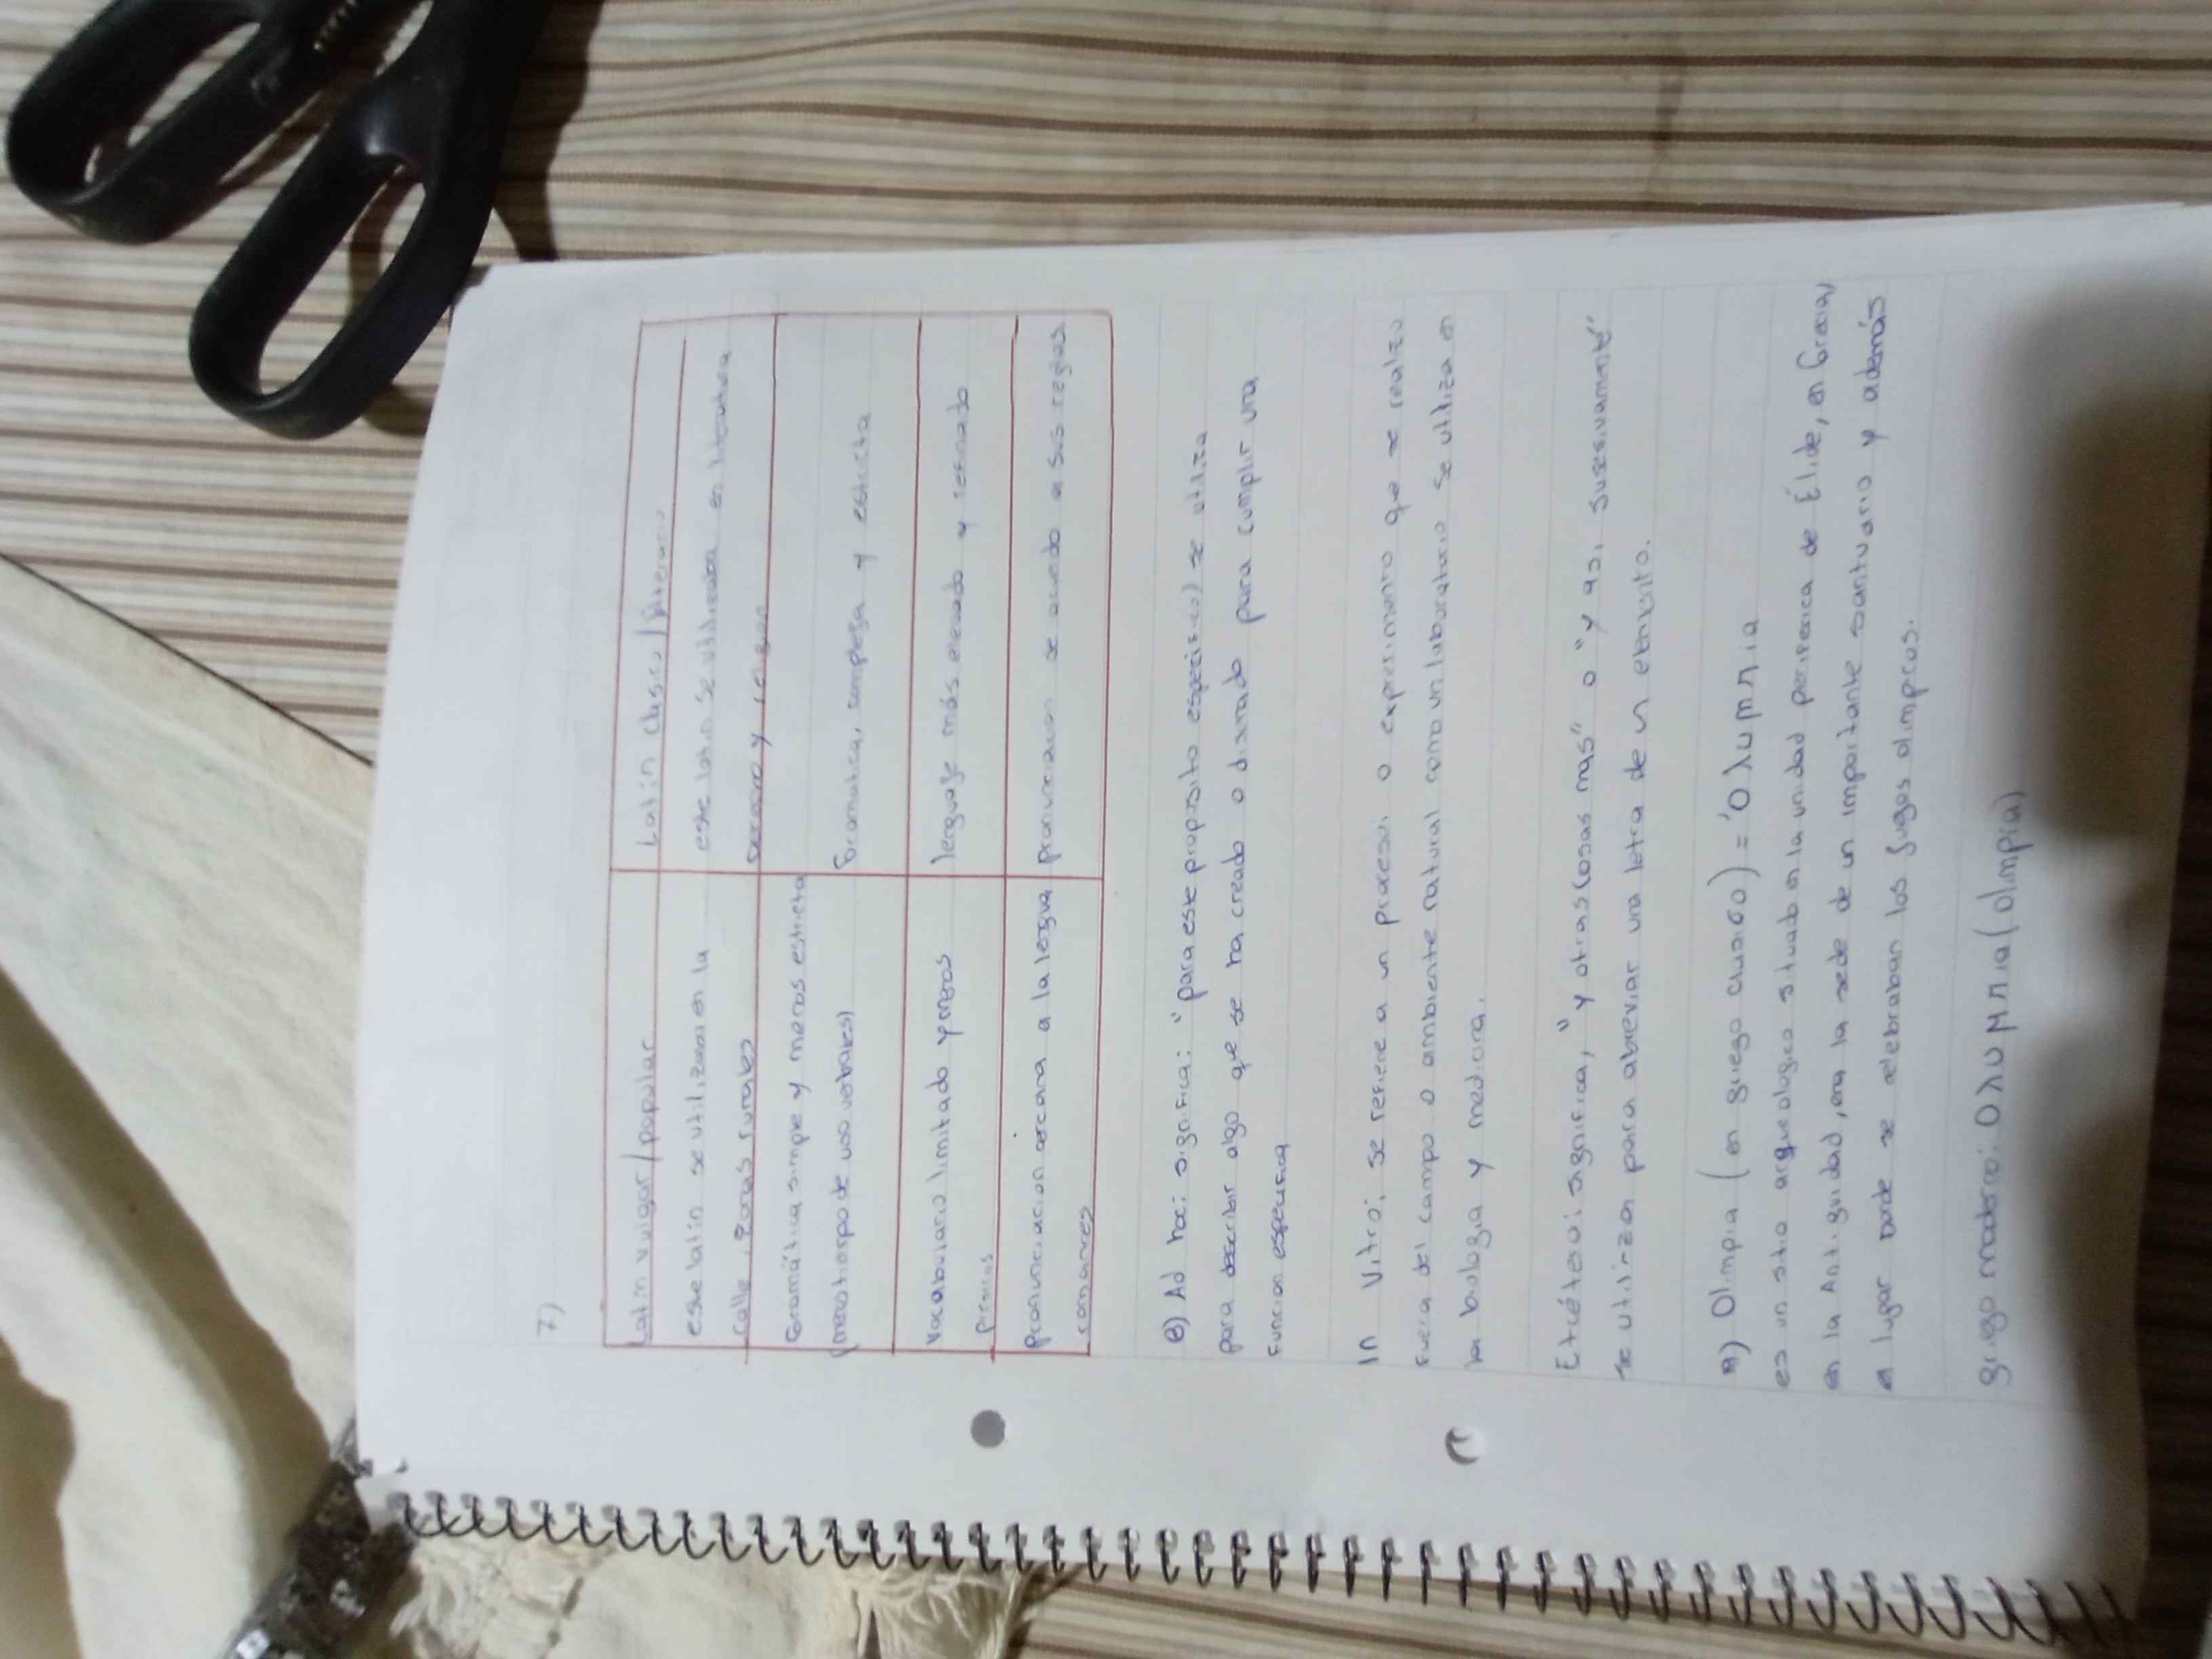 7)
Latin vulgar/popular
Latin clasico/literario
este latin se utilizaba en la
calle, zonas rurales
este latin se utilizaba en literatura
y religion
Gramática simple y menos estricta
(menos tiempo de uso verbales)
Gramatica, compleja y estricta
Vocabulario limitado y menos
preciso
lenguaje más elevado y refinado
pronunciacion cercana a la lengua
romances
pronunciacion de acuerdo a sus reglas
8) Ad hoc: significa: "para este proposito especifico) se utiliza
para describir algo que se ha creado o diseñado para cumplir una
funcion especifica
In Vitro: se refiere a un proceso o experimento que se realiza
fuera del campo o ambiente natural como un laboratorio se utiliza en
la biologia y medicina.
Etcétera: significa, "y otras cosas mas" o "y asi susesivamente"
se utilizan para abreviar una letra de un
9) Olimpia (en griego clasico) = 'Ολυμπια
es un sitio arqueologico situado en la unidad periferica de Élide, en Grecia,
en la Antiguidad, era la sede de un importante santuario y además
el lugar donde se celebraban los Jugos olimpicos.
griego moderno: Ολυμπια (Olimpia)